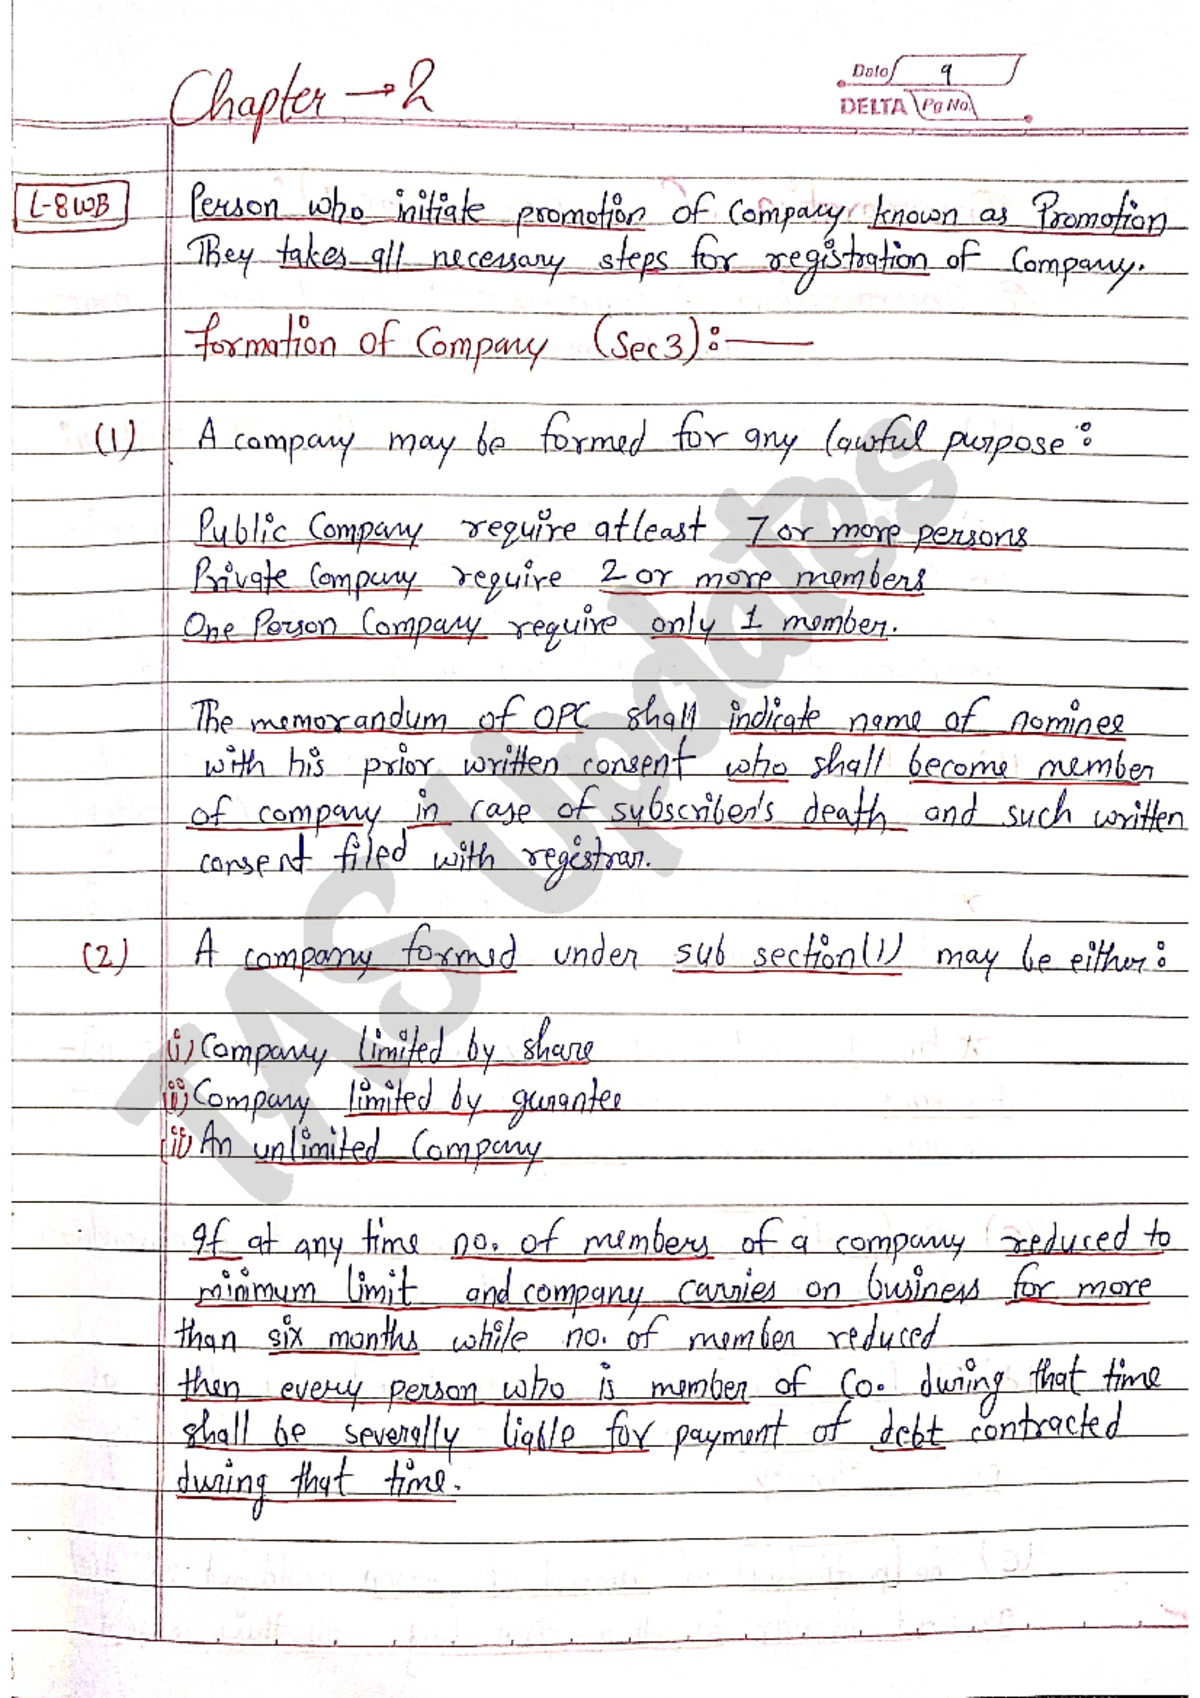 Chapter → 2
Date 9
DELTA Pg No.
L-8 WB
Person who initiate promotion of Company known as Promotion
They takes all necessary steps for registration of Company.
formation of Company (Sec 3):—
(1) A company may be formed for any lawful purpose:
Public Company require atleast 7 or more persons
Private Company require 2 or more members
One Person Company require only 1 member.
The memorandum of OPC shall indicate name of nominee
with his prior written consent who shall become member
of company in case of subscriber's death and such written
consent filed with registrar.
(2) A company formed under sub section(1) may be either:
(i) Company limited by share
(ii) Company limited by gurantee
(ii) An unlimited Company
If at any time no. of members of a company reduced to
minimum limit and company carries on business for more
than six months while no. of member reduced
then every person who is member of Co. during that time
shall be severally liable for payment of debt contracted
during that time.
IAS Updates